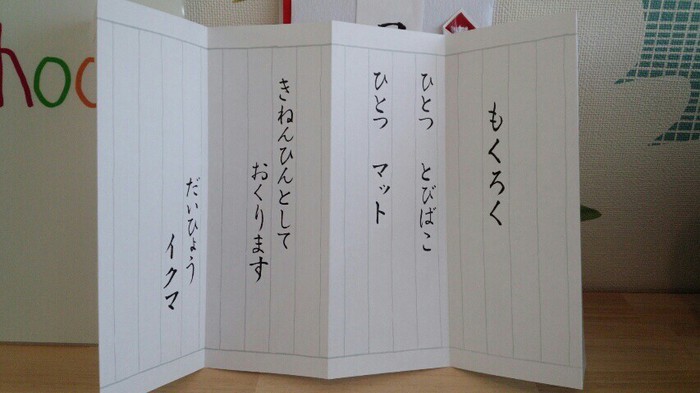 もくろく
ひとつ とびばこ
ひとつ マット
きねんひんとして
おくります
だいひょう
イクマ
hoc